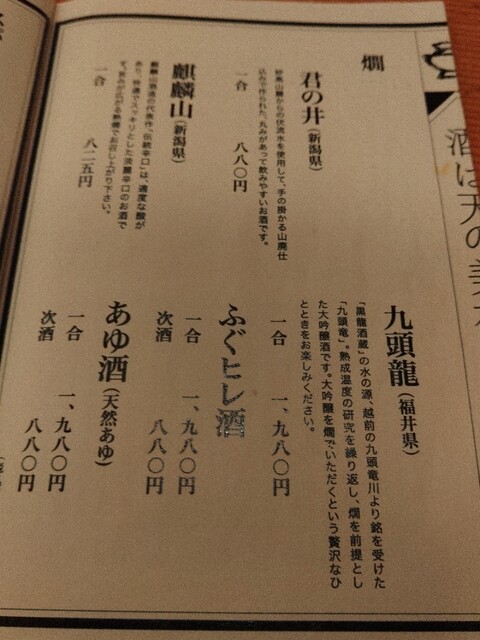 酒は天の美
燗
君の井（新潟県）
妙高山麓からの伏流水を使用して、手の掛かる山廃仕
込みで作られた、丸みがあって飲みやすいお酒です。
一合 八八〇円
麒麟山（新潟県）
麒麟山酒造の代表作「伝統辛口」は、適度な酸が
あり、軽快でスッキリとした淡麗辛口のお酒で
す。旨みが広がる熱燗でお召し上がり下さい。
一合 八二五円
九頭龍（福井県）
「黒龍酒蔵」の水の源、越前の九頭竜川より銘を受けた
「九頭竜」。熟成温度の研究を繰り返し、燗を前提とし
た大吟醸酒です。大吟醸を燗でいただくという贅沢なひ
とときをお楽しみください。
一合 一、九八〇円
ふぐヒレ酒
一合 一、九八〇円
次酒 八八〇円
あゆ酒（天然あゆ）
一合 一、九八〇円
次酒 八八〇円